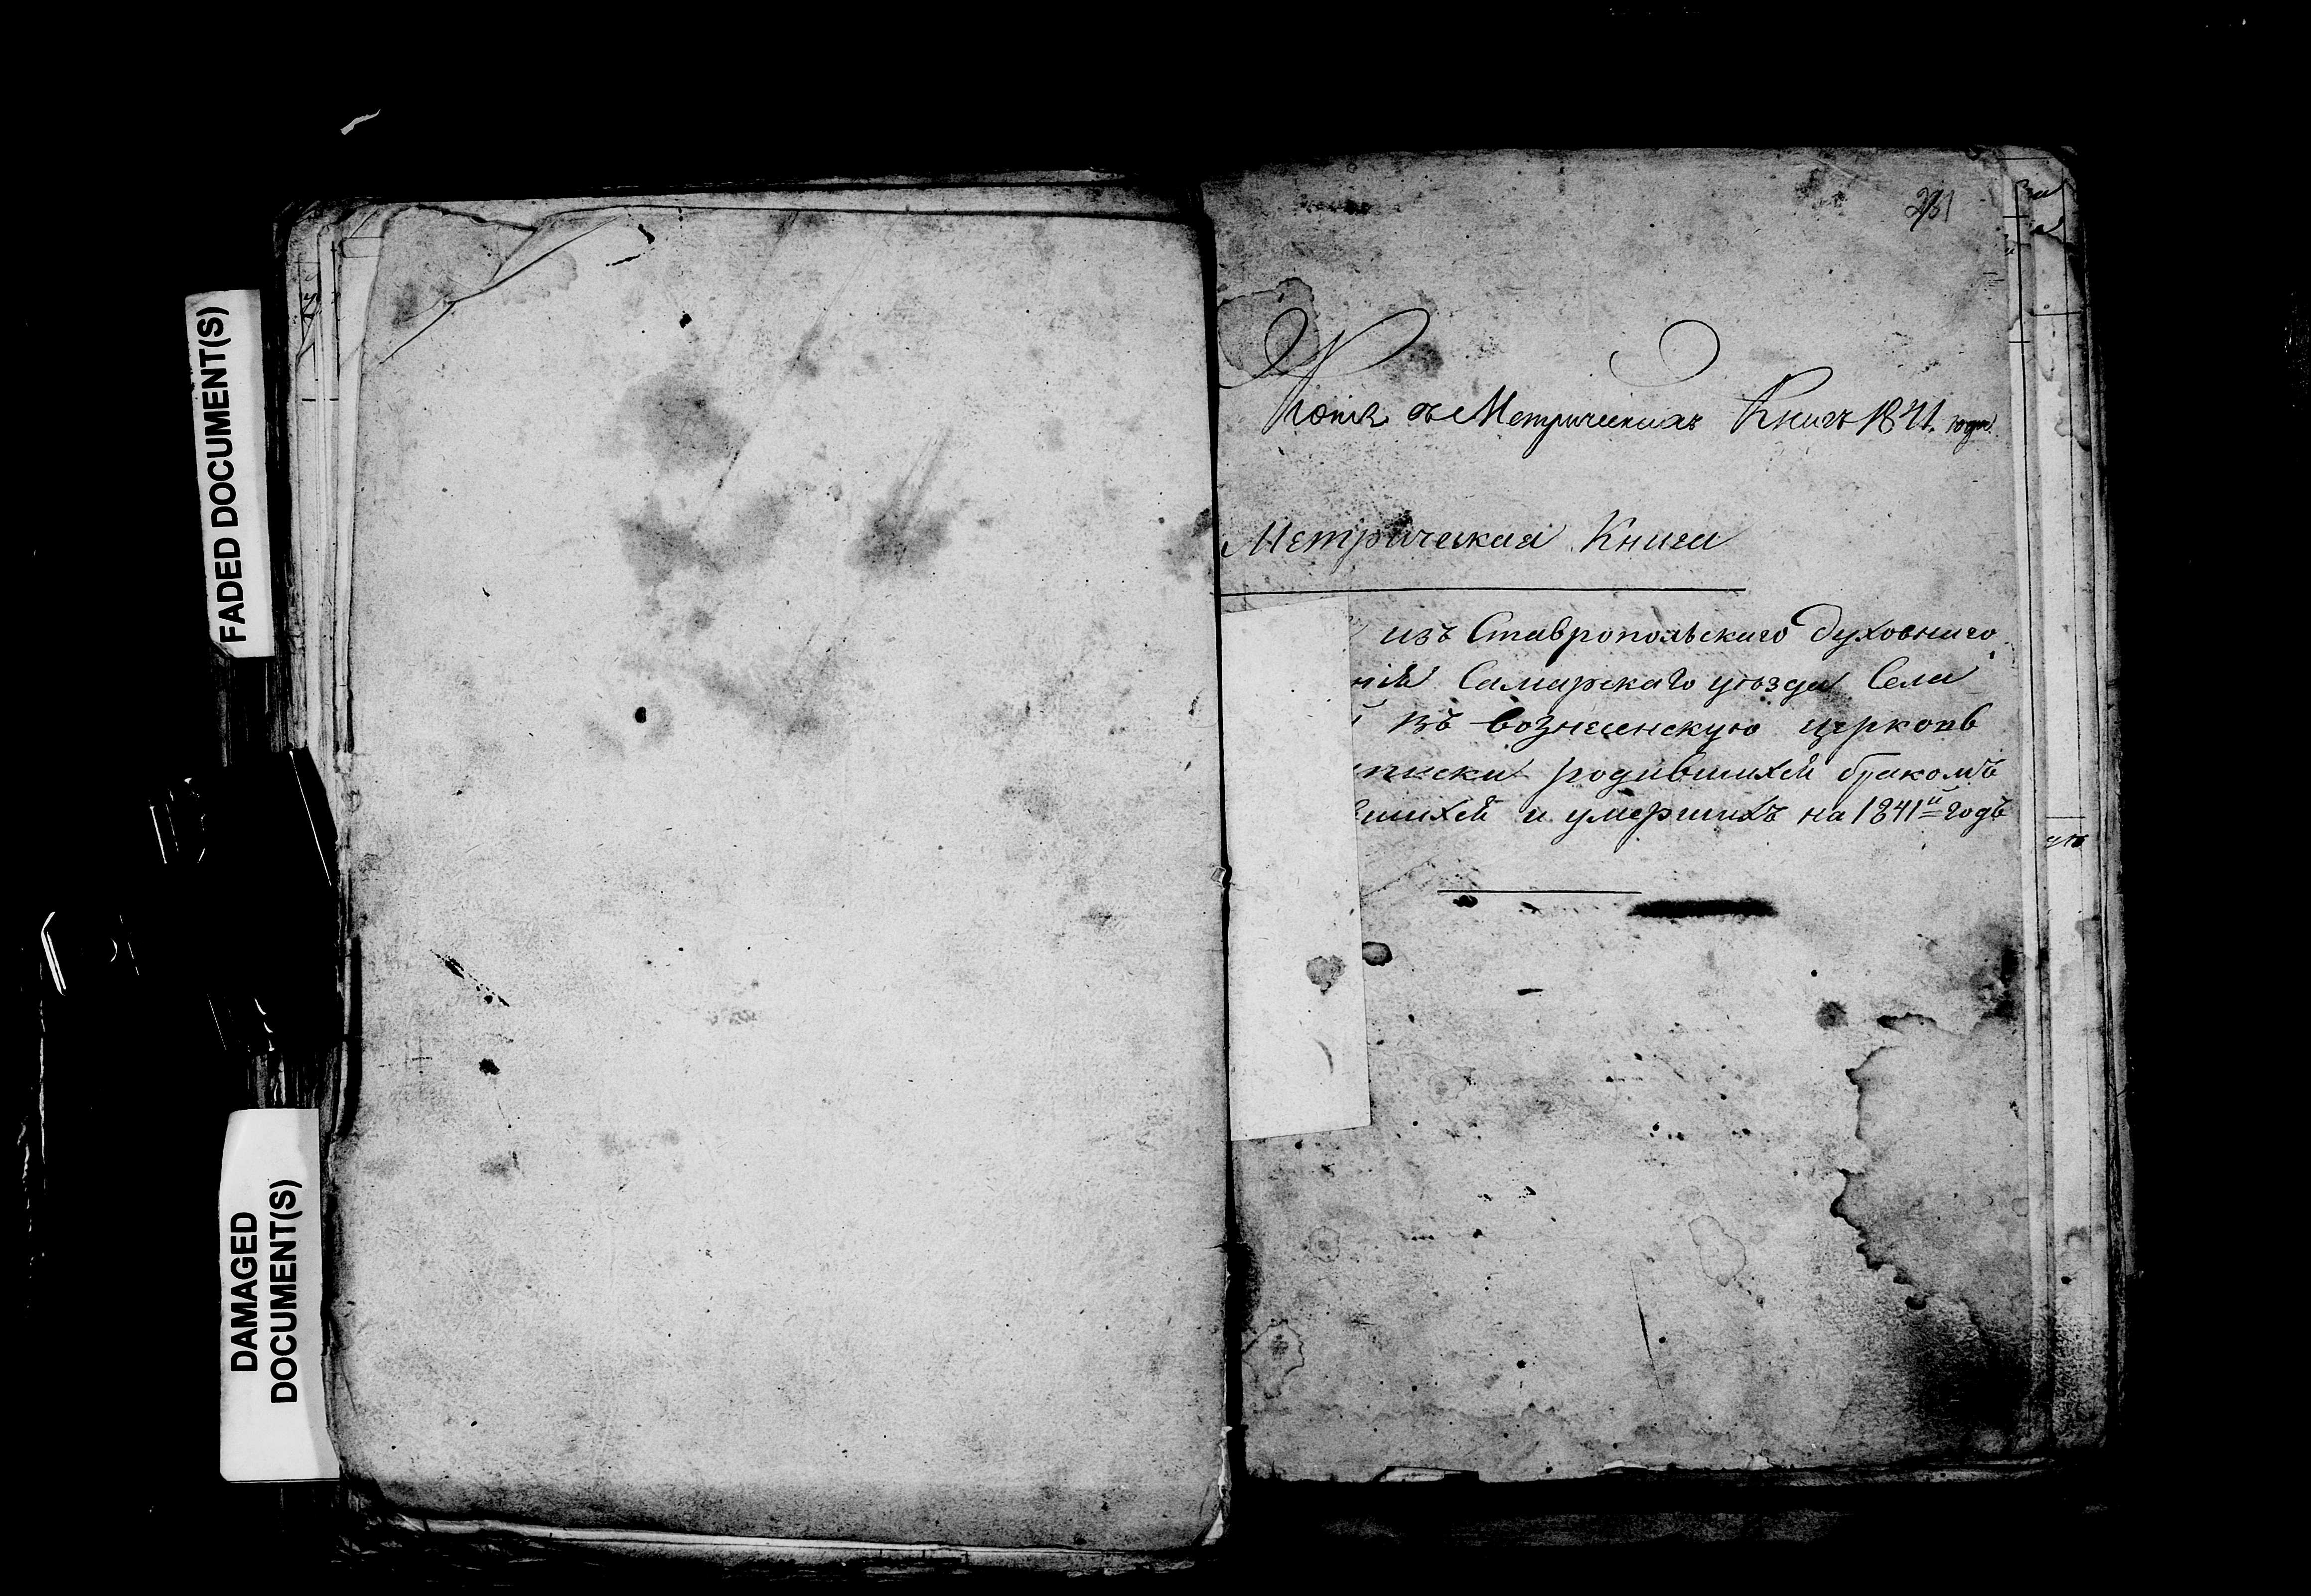 FADED DOCUMENT(S)
DAMAGED
DOCUMENT(S)
281
Копія съ Метрическихъ Книгъ 1841. года.
Метрическая Книга
изъ Ставропольского духовного
нія Самарскаго уѣзда Села
въ вознесенскую церковь
писки родившихся бракомъ
шихся и умершихъ на 1841й годъ